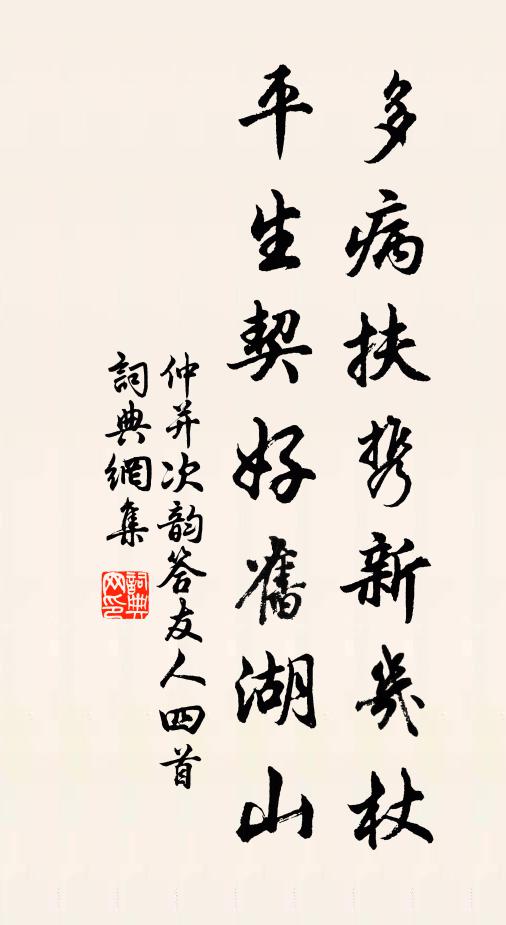 多病扶携新几杖
平生契好舊湖山
仲并次韵答友人四首
詞典網集
詞典网印